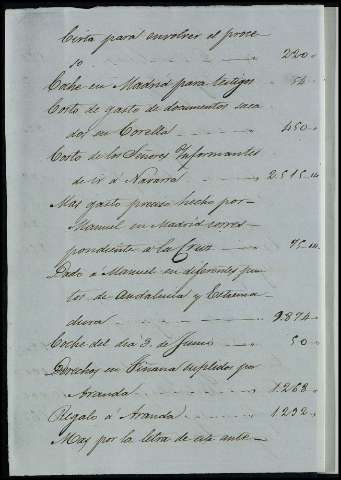 Cinta para envolver el proce-
so 220"
Coche en Madrid para testigos 54"
Costo de gasto de documentos saca
dos en Corella 450"
Costo de los Señores Informantes
de ir á Navarra 2515
Mas gasto preciso hecho por
Manuel en Madrid corres
pondiente a la Cruz 75
Dado a Manuel en diferentes pun
tos de Andalucia y Estrema
dura 9.874"
Coche del dia 9. de Junio 50"
Derechos en suplidos por
Aranda 1.268"
Regalo á Aranda 1292"
Mas por la letra de este ante-